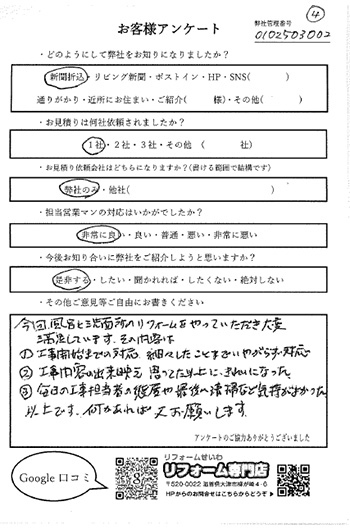 ④
お客様アンケート
弊社管理番号
0102503002
・どのようにして弊社をお知りになりましたか？
新聞折込・リビング新聞・ポストイン・HP・SNS( )
通りがかり・近所にお住まい・ご紹介( 様)・その他( )
・お見積りは何社依頼されましたか？
1社・2社・3社・その他 ( 社)
・お見積り依頼会社はどちらになりますか？(書ける範囲で結構です)
弊社のみ・他社( )
・担当営業マンの対応はいかがでしたか？
非常に良い・良い・普通・悪い・非常に悪い
・今後お知り合いに弊社をご紹介しようと思いますか？
是非する・したい・聞かれれば・したくない・絶対しない
・その他ご意見等ご自由にお書きください
今回風呂と洗面所のリフォームをやっていただき大変
満足しています。その内容は
① 工事開始までの対応 細々したことまでいやがらず対応
② 工事内容の出来映え 思ってた以上に、きれいになった
③ 毎日の工事担当者の態度や最後の清掃など気持がよかった
以上です。何かあれば又お願いします。
アンケートのご協力ありがとうございました
Google 口コミ
リフォームせいわ
リフォーム専門店
〒520-0022 滋賀県大津市柳が崎4-6
HPからのお問合せはこちらからどうぞ ▶